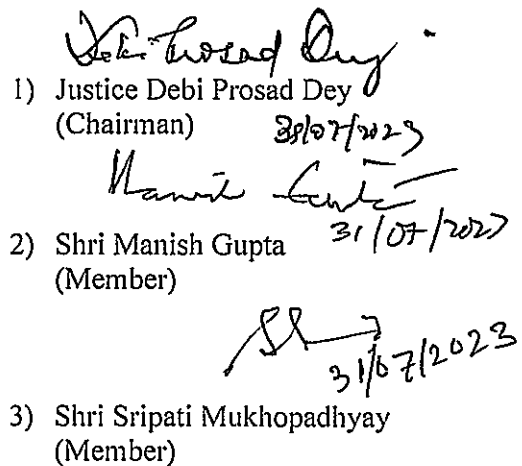 Debi Prosad Dey
1) Justice Debi Prosad Dey
(Chairman)
Manish Gupta
31/07/2023
2) Shri Manish Gupta
(Member)
31/07/2023
3) Shri Sripati Mukhopadhyay
(Member)